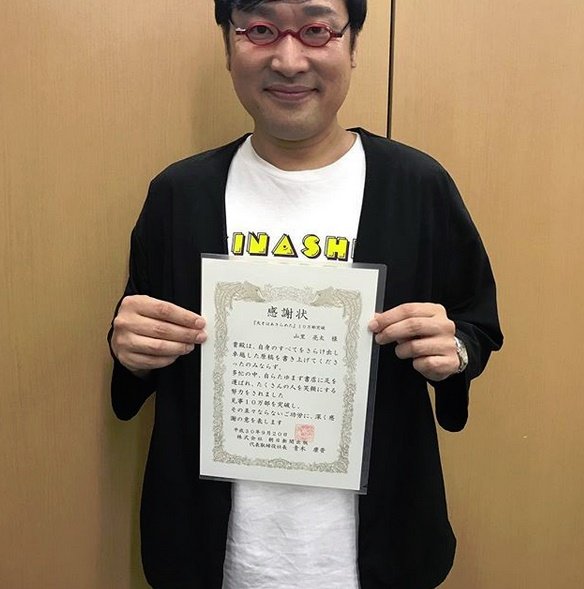 INASH
感謝状
『天才はあきらめた』１０万部突破
山里　亮太　様
貴殿は、自身のすべてをさらけ出し
卓越した原稿を書き上げてくださ
ったのみならず、
多忙の中、自らたゆまず書店に足を
運ばれ、たくさんの人を笑顔にする
努力をされました
見事１０万部を突破し、
その並々ならないご功分に、深く感
謝の意を表します
平成３０年９月２０日
株式会社　朝日新聞出版
代表取締役社長　青木　康晋